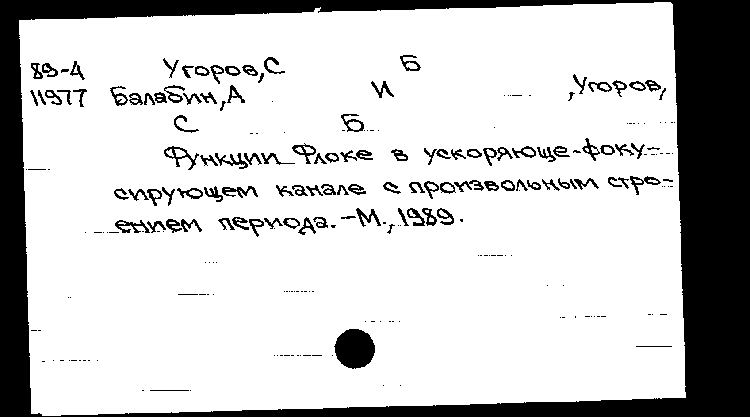 89-4 Угоров, С Б
11977 Балабин, А И , Угоров,
С Б
Функции Флоке в ускоряюще-фоку-
сирующем канале с произвольным стро-
ением периода. - М., 1989.